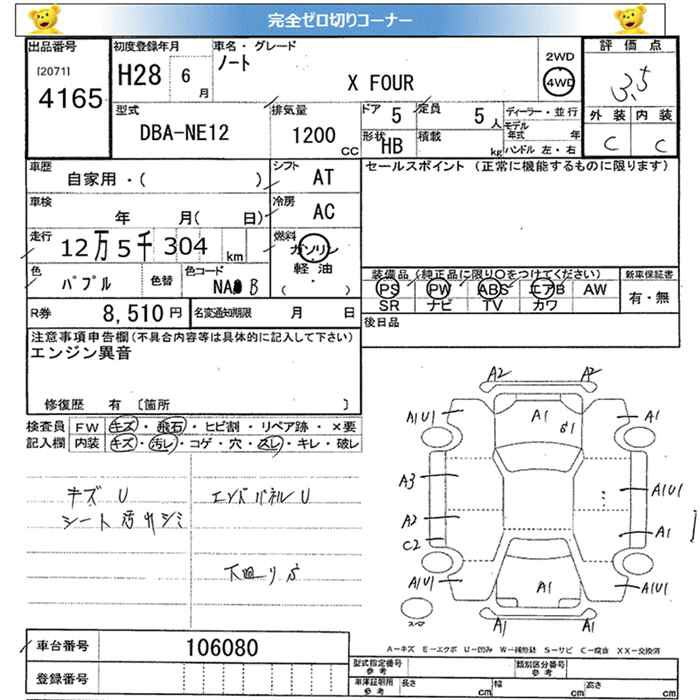 完全ゼロ切りコーナー
出品番号
[2071]
4165
初度登録年月
H28 6 月
車名・グレード
ノート
X FOUR
2WD
4WD
評価点
3.5
外装 内装
C C
型式
DBA-NE12
排気量
1200 CC
ドア 5
定員 5 人
形状 HB
積載 kg
ディーラー・並行
モデル年式 年
ハンドル 左・右
車歴
自家用・( )
シフト AT
セールスポイント (正常に機能するものに限ります)
車検 年 月( 日)
冷房 AC
走行 12万5千304 km
燃料
ガソリン
軽油
( ・ )
色 パプル
色替
色コード NA B
装備品 (純正品に限り○をつけてください)
PS PW ABS エアB AW
SR ナビ TV カワ
新車保証書
有・無
R券 8,510円
名変通知期限 月 日
後日品
注意事項申告欄(不具合内容等は具体的に記入して下さい)
エンジン異音
修復歴 有 〔箇所 〕
検査員記入欄
FW キズ・飛石・ヒビ割・リペア跡・×要
内装 キズ・汚レ・コゲ・穴・スレ・キレ・破レ
キズ U
シート汚れシミ
エンドパネル U
下回りS
A2 A2
A1U1 A1 A1
A3 A1U1
A2 A1
C2
A1U1 A1 A1U1
A1 A1
A-キズ E-エクボ U-凹み W-補修跡 S-サビ C-腐食 XX-交換済
車台番号 106080
登録番号
型式指定番号 参考
類別区分番号 参考
車庫証明用 参考
長さ cm
幅 cm
高さ cm